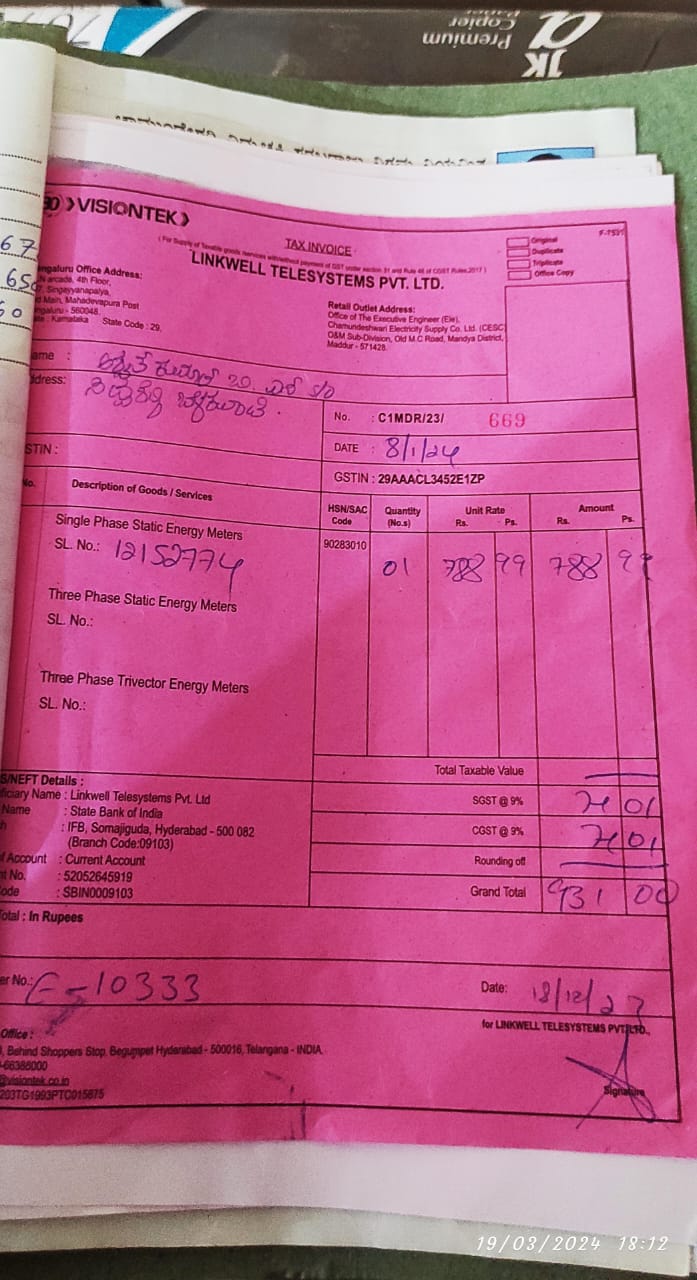 JK
Copier
Premium
67
650
60
VISIONTEK
F-7531
TAX INVOICE
( For Supply of Taxable goods /services with/without payment of GST under section 31 and Rule 46 of CGST Rules,2017 )
LINKWELL TELESYSTEMS PVT. LTD.
Original
Duplicate
Triplicate
Office Copy
ngaluru Office Address:
arcade, 4th Floor,
Singayyanapalya,
Main, Mahadevapura Post
ngaluru - 560048.
Karnataka State Code : 29.
Retail Outlet Address:
Office of The Executive Engineer (Ele),
Chamundeshwari Electricity Supply Co. Ltd. (CESC)
O&M Sub-Division, Old M.C Road, Mandya District,
Maddur - 571428.
ame :
dress:
No. : C1MDR/23/ 669
DATE : 8/1/24
STIN :
GSTIN : 29AAACL3452E1ZP
No. Description of Goods / Services HSN/SAC Code Quantity (No.s) Unit Rate Rs. Ps. Amount Rs. Ps.
Single Phase Static Energy Meters 90283010
SL. No.: 12152774 01 788 99 788 99
Three Phase Static Energy Meters
SL. No.:
Three Phase Trivector Energy Meters
SL. No.:
Total Taxable Value
S/NEFT Details :
ficiary Name : Linkwell Telesystems Pvt. Ltd
SGST @ 9% 71 01
Name : State Bank of India
: IFB, Somajiguda, Hyderabad - 500 082
CGST @ 9% 71 01
(Branch Code:09103)
f Account : Current Account
Rounding off
nt No. : 52052645919
ode : SBIN0009103
Grand Total 931 00
Total : In Rupees
er No.: E-10333
Date: 18/12/23
Office :
for LINKWELL TELESYSTEMS PVT. LTD.,
, Behind Shoppers Stop, Begumpet Hyderabad - 500016, Telangana - INDIA
-66388000
@visiontek.co.in
203TG1993PTC015675
Signature
19/03/2024 18:12